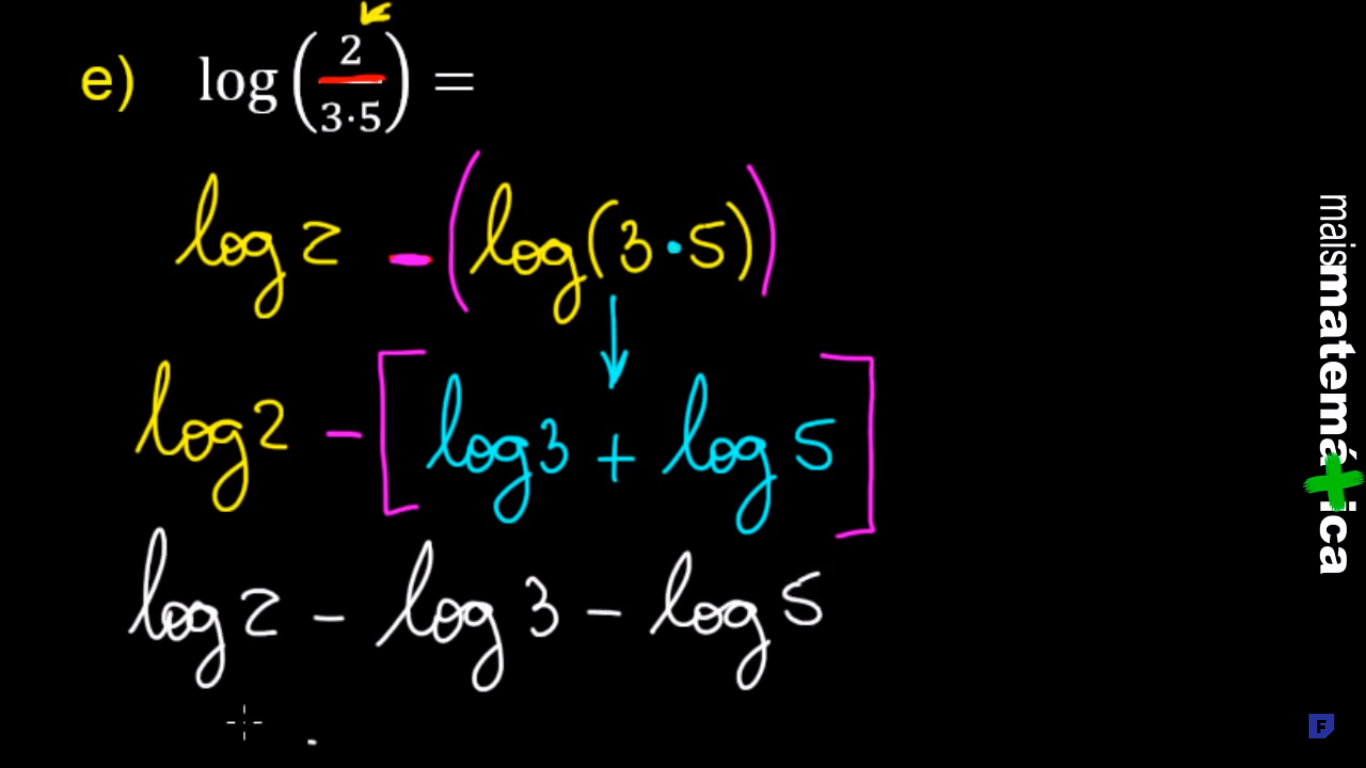 e) log(2/3·5) =
log 2 - (log(3·5))
log 2 - [log 3 + log 5]
log 2 - log 3 - log 5
maismatemática
F